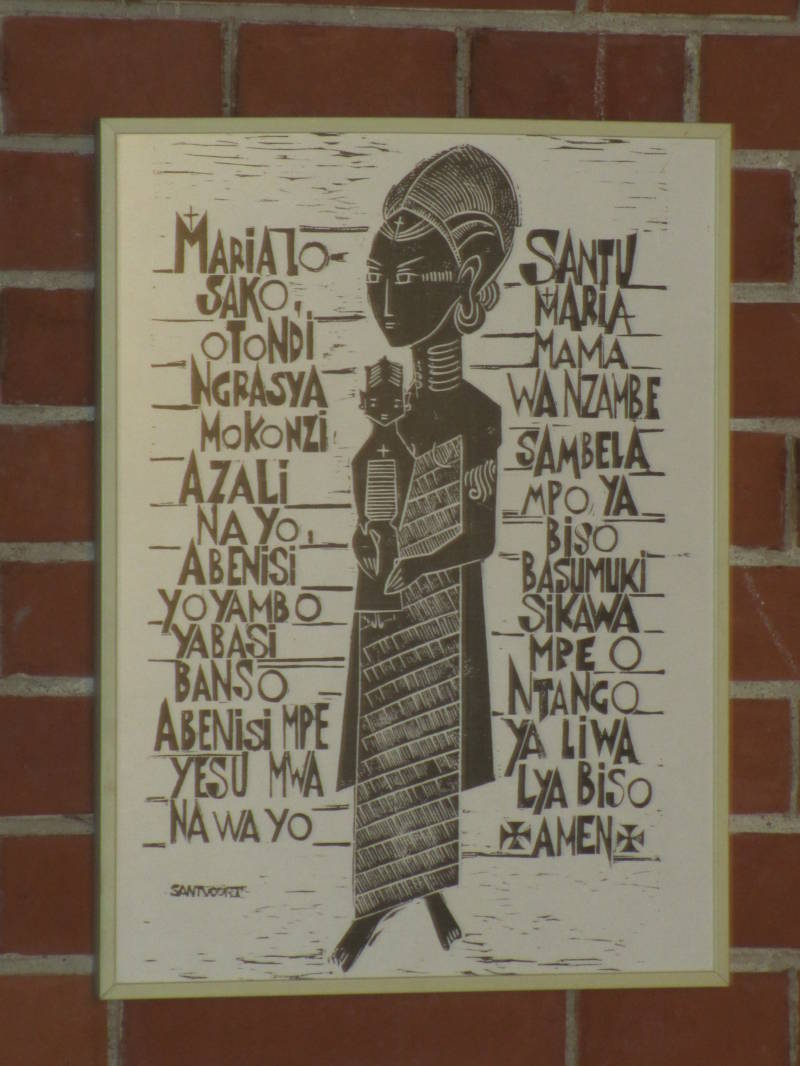 MARIA LO-
SAKO,
OTONDI
NGRASYA
MOKONZI
AZALI
NA YO,
ABENISI
YO YAMBO
YA BASI
BANSO
ABENISI MPE
YESU MWA
NA WA YO
SANTVOORT
SANTU
MARIA
MAMA
WA NZAMBE
SAMBELA
MPO YA
BISO
BASUMUKI
SIKAWA
MPE O
NTANGO
YA LIWA
LYA BISO
AMEN